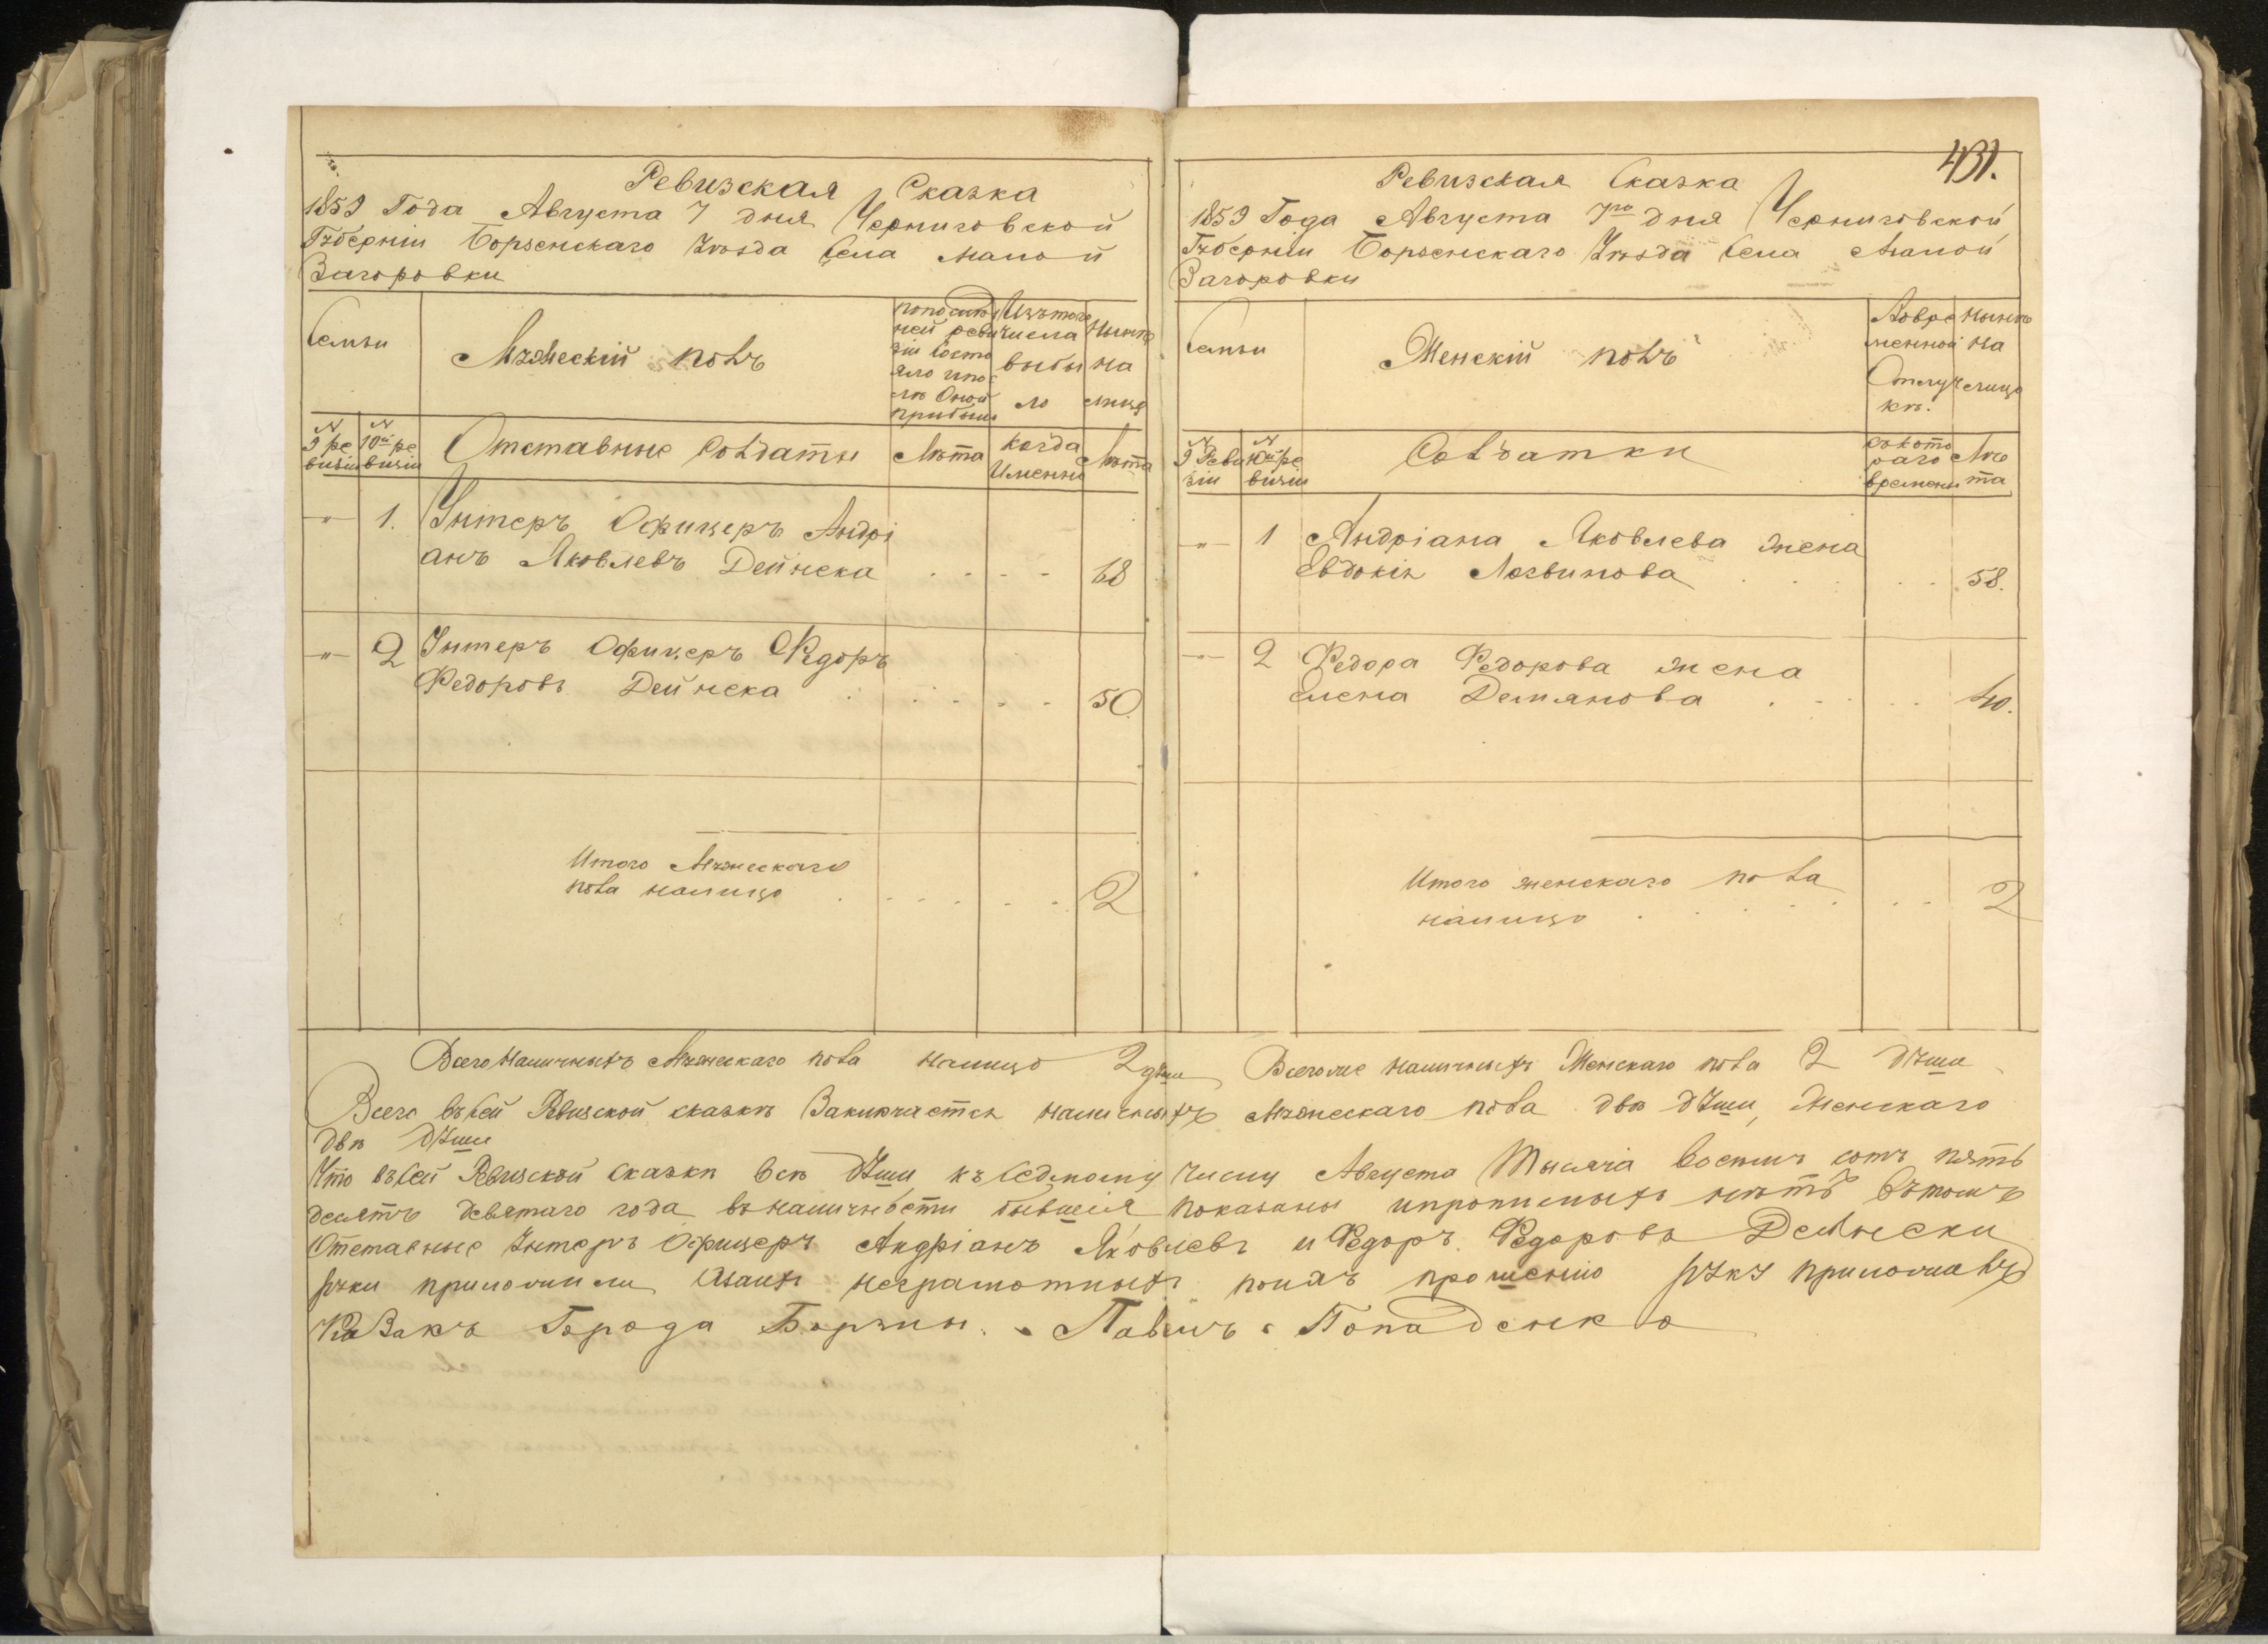 Ревизская Сказка
1859 Года Августа 7 дня Черниговской
Губерніи Борзенскаго Уѣзда Села Малой
Загоровки
Семьи
Мужескій полъ
попослѣд
ней реви
зіи Состо
яло ипос
лѣ Оной
прибыло
Изътого
числа
выбы
ло
Нынѣ
на
лицо
№ 9 ре
визіи
№ 10й ре
визіи
Отставные Солдаты
Лѣта
когда
Именно
Лѣта
-"- 1. Унтеръ Офицеръ Андрі
анъ Яковлевъ Дейнека 68
-"- 2 Унтеръ Офицеръ Федоръ
Федоровъ Дейнека 50
Итого Мужескаго
пола налицо 2
431.
Ревизская Сказка
1859 Года Августа 7го дня Черниговской
Губерніи Борзенскаго Уѣзда Села Малой
Загоровки
Семьи
Женскій полъ
Вовре
менной
Отлуч
кѣ.
Нынѣ
на
лицо
№ 9 Реви
зіи
№ 10й ре
визіи
Солдатки
съкото
раго
времени
Лѣ
та
-"- 1 Андріана Яковлева жена
Евдокія Логвинова 58.
-"- 2 Федора Федорова жена
Елена Демянова 40.
Итого женскаго пола
налицо 2
Всего Наличныхъ Мужескаго пола налицо 2 души Всегоже наличныхъ Женскаго пола 2 души
Всего въсей Ревизской сказкѣ Заключается наличныхъ Мужескаго пола двѣ души, Женскаго
двѣ души
Что въсей Ревизской Сказки всѣ души къ седмому числу Августа Тысяча восемъ сотъ пять
десятъ девятаго года въналичности бывшія показаны ипрописныхъ нѣтъ вътомъ
Отставные Унтеръ Офицеръ Андріанъ Яковлевъ и Федоръ Федоровъ Дейнеки
руки приложили Азаихъ неграмотныхъ поихъ прошенію руку приложилъ
Казакъ Города Борзны Павелъ Попаденко